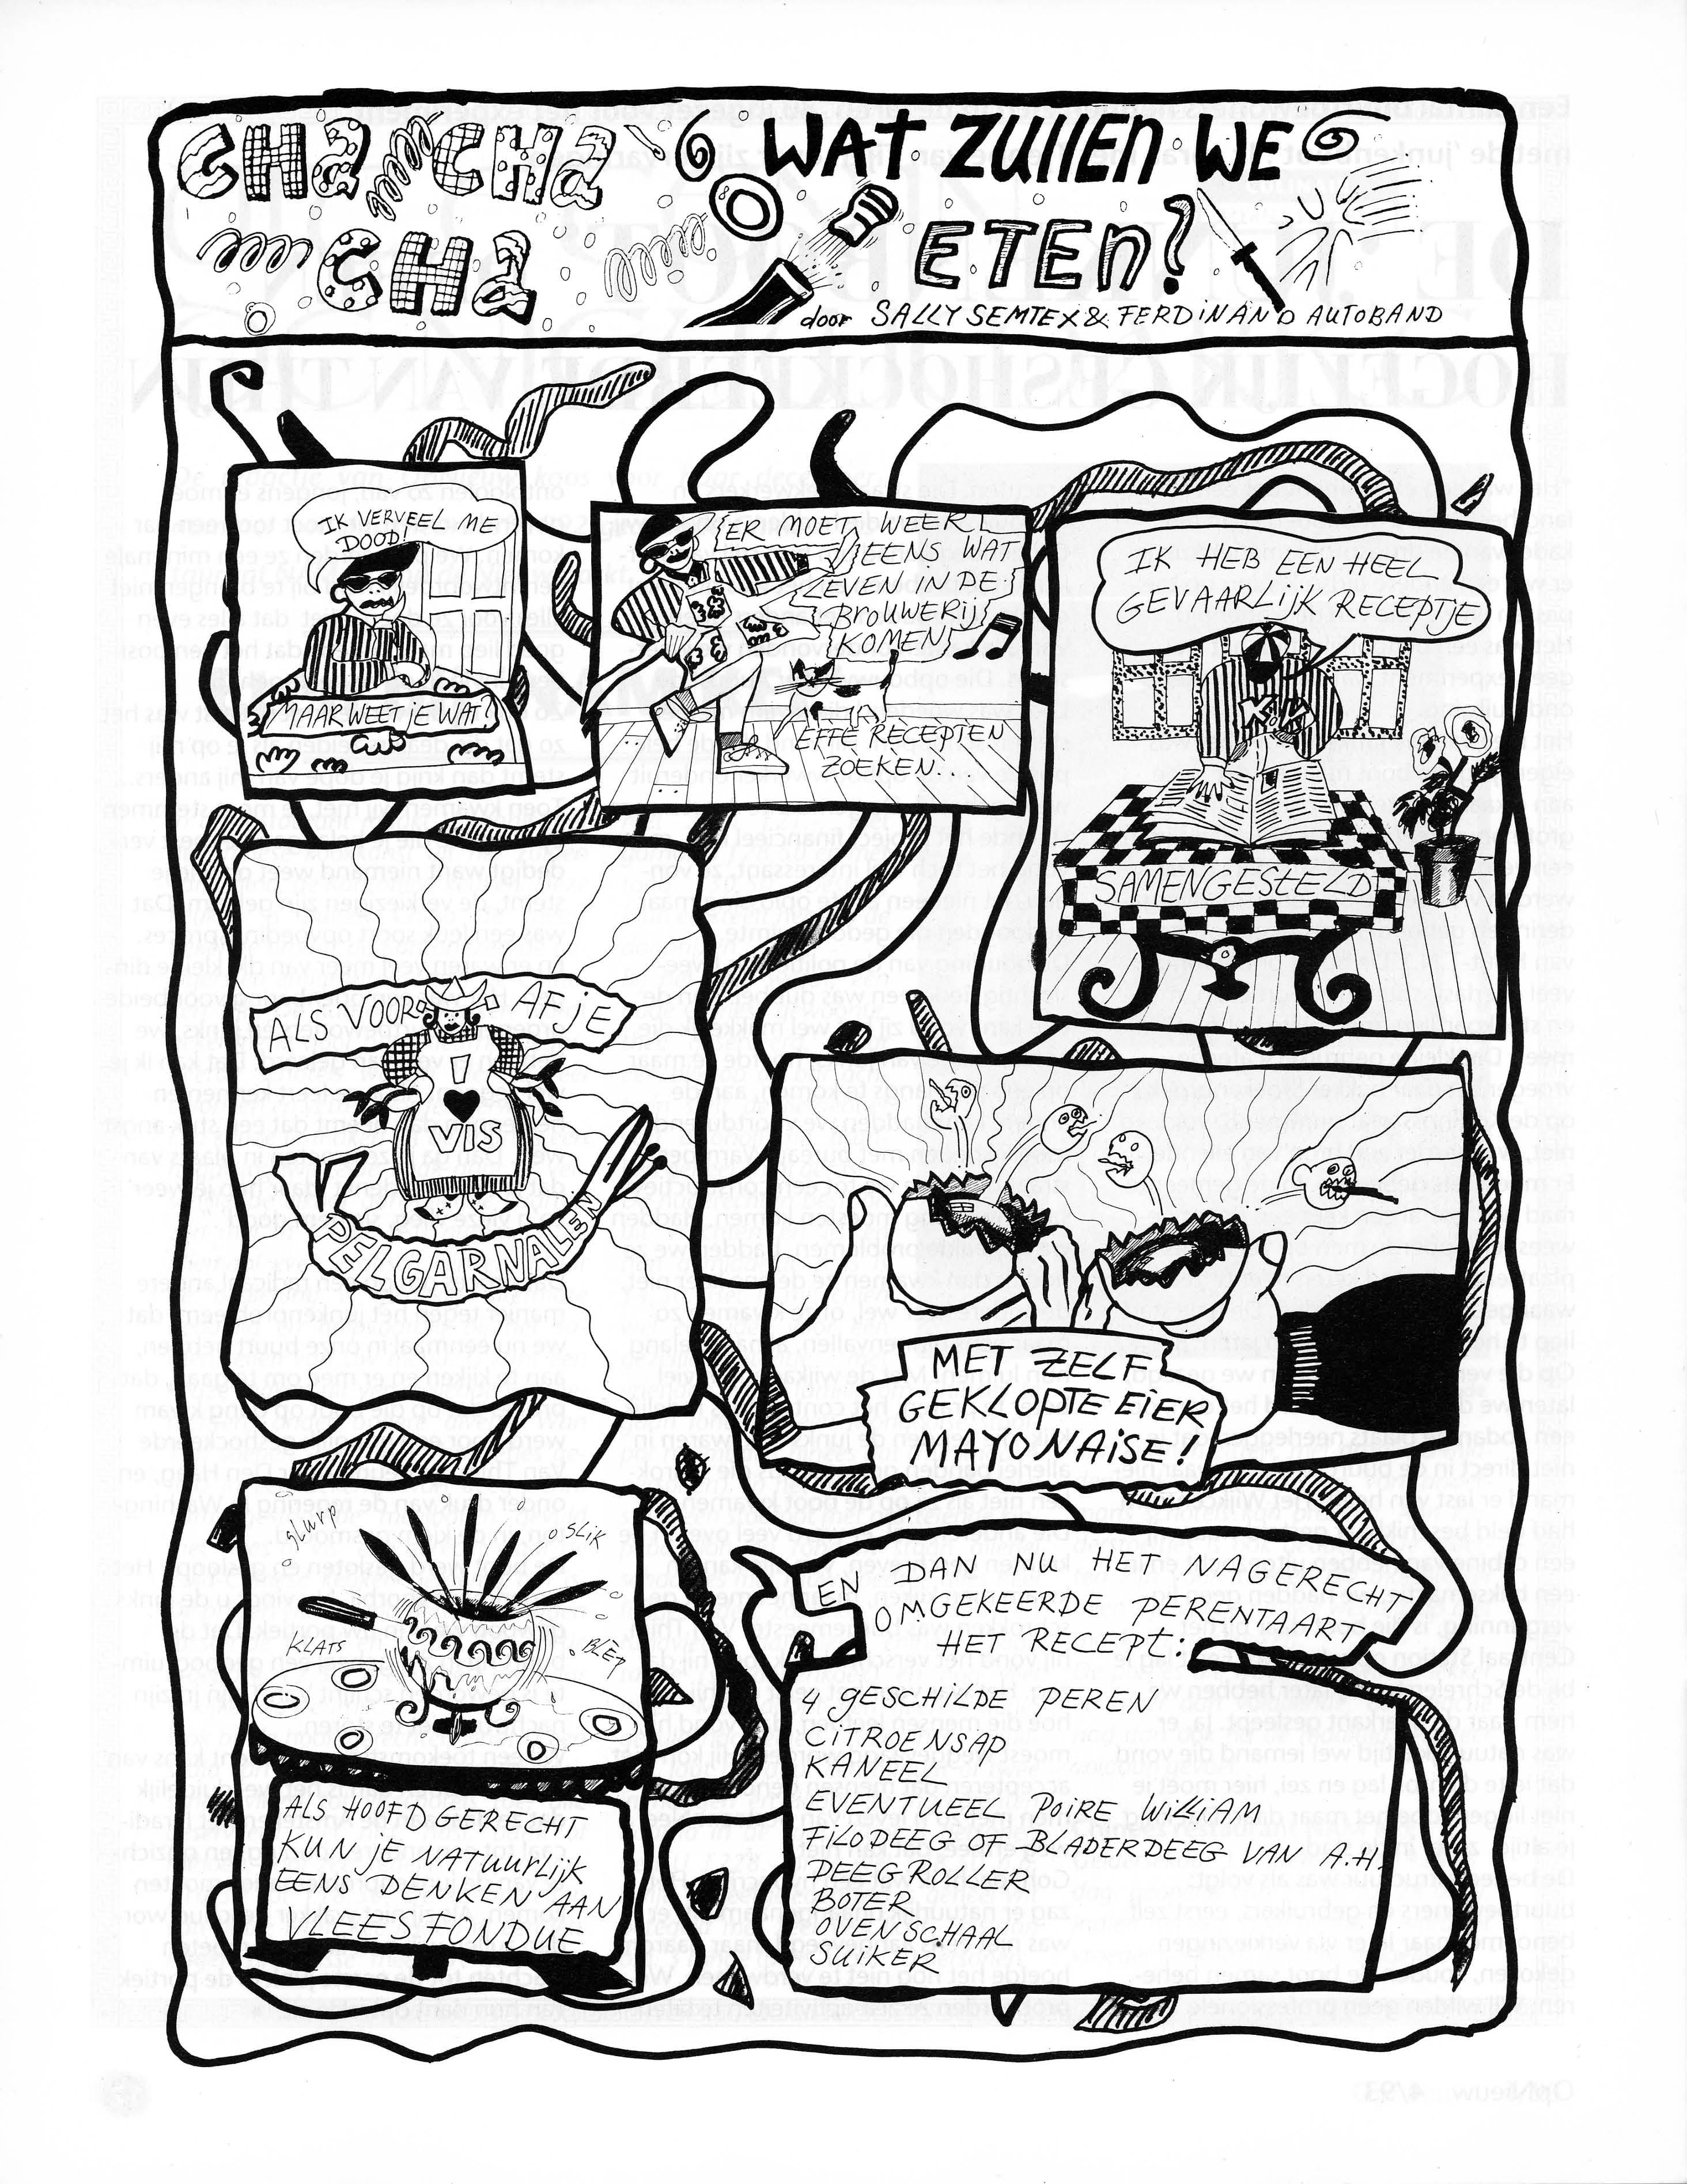 CHA CHA
CHA
WAT ZULLEN WE
ETEN?
door SALLY SEMTEX & FERDINAND AUTOBAND
IK VERVEEL ME
DOOD!
MAAR WEET JE WAT?
ER MOET WEER
EENS WAT
LEVEN IN DE
BROUWERIJ
KOMEN!
IK GA
EFFE RECEPTEN
ZOEKEN..
IK HEB EEN HEEL
GEVAARLIJK RECEPTJE
KOK
SAMENGESTELD
ALS VOORAFJE
VIS
PELGARNALEN
MET ZELF
GEKLOPTE EIER
MAYONAISE!
SLURP
SLIK
KLATS
BLEP
ALS HOOFDGERECHT
KUN JE NATUURLIJK
EENS DENKEN AAN
VLEESFONDUE
EN DAN NU HET NAGERECHT
OMGEKEERDE PERENTAART
HET RECEPT:
4 GESCHILDE PEREN
CITROENSAP
KANEEL
EVENTUEEL POIRE WILLIAM
FILODEEG OF BLADERDEEG VAN A.H.
DEEGROLLER
BOTER
OVENSCHAAL
SUIKER